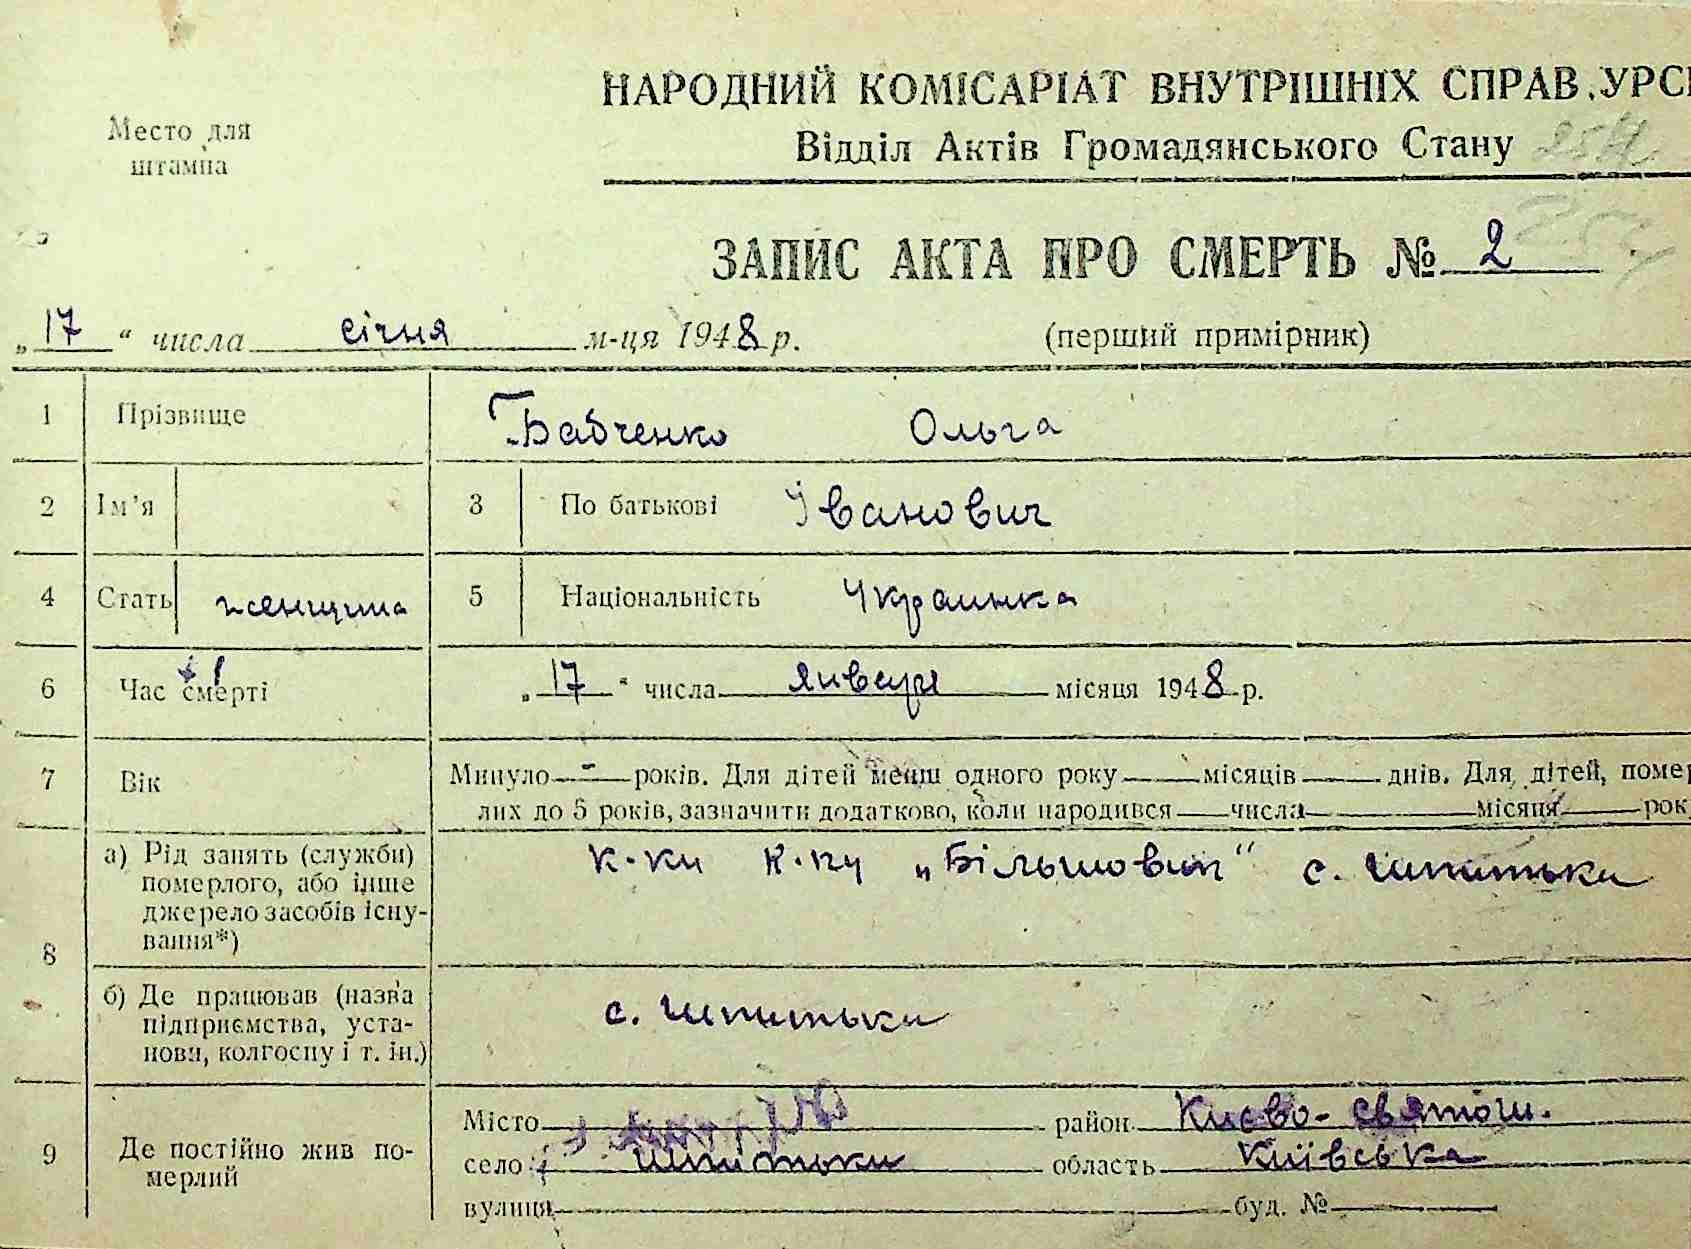 НАРОДНИЙ КОМІСАРІАТ ВНУТРІШНІХ СПРАВ УРСР
Відділ Актів Громадянського Стану
Место для
штампа
ЗАПИС АКТА ПРО СМЕРТЬ № 2
„17“ числа січня м-ця 1948 р. (перший примірник)
1 Прізвище Бабченко Ольга
2 Ім’я 3 По батькові Іванович
4 Стать женщина 5 Національність Украинка
6 Час смерті „17“ числа января місяця 1948 р.
7 Вік Минуло - років. Для дітей менш одного року місяців днів. Для дітей, помер
лих до 5 років, зазначити додатково, коли народився числа місяця рок
8 а) Рід занять (служби) к-ки к-пу „Більшовик“ с. Шпитьки
померлого, або інше
джерело засобів існу-
вання*)
б) Де працював (назва с. Шпитьки
підприємства, уста-
нови, колгоспу і т. ін.)
9 Де постійно жив по-
мерлий
Місто район Києво-святош.
село Шпитьки область Київська
вулиця буд. №